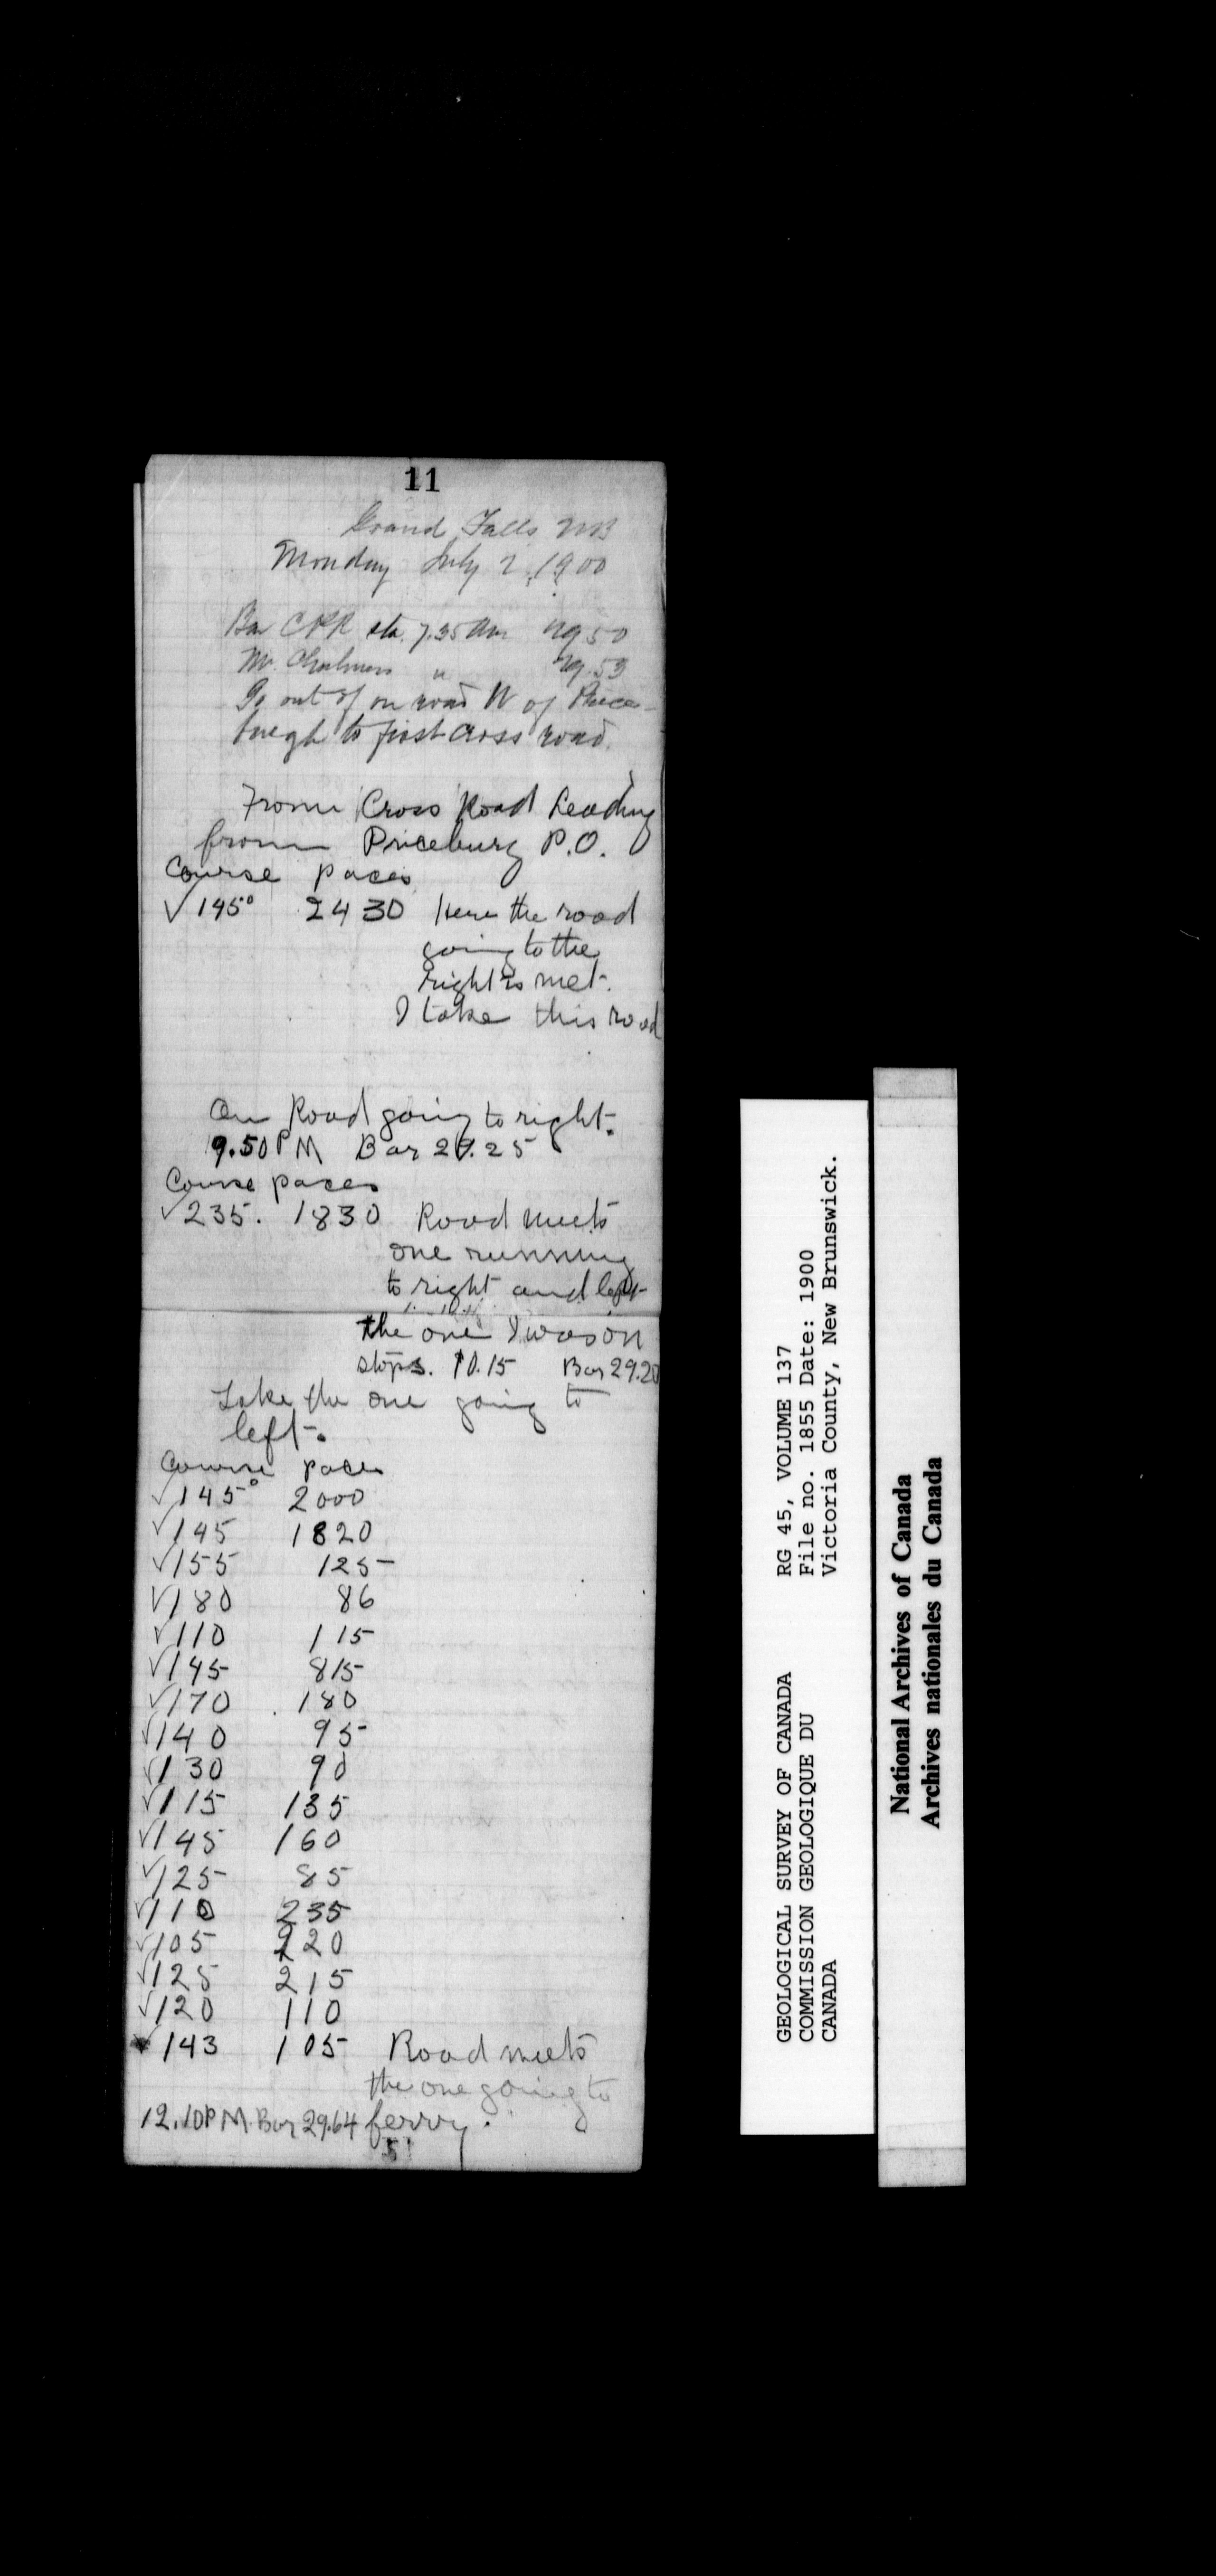 11
Grand Falls NB
Monday July 2, 1900
Bar CPR sta. 7.35 Am 29 50
Mr. Chalmers " 29.53
Go out of on road W of Price-
burgh to first cross road.
From Cross Road Leading
from Priceburg P.O.
Course paces
✓ 145° 2430 Here the road
going to the
right is met.
I take this road
On Road going to right.
9.50 PM Bar 29.25
Course paces
✓ 235. 1830 Road meets
one running
to right and left
the one I was on
stops. 10.15 Bar 29.20
Take the one going to
left.
Course paces
✓ 145° 2000
✓ 145 1820
✓ 155 125
✓ 180 86
✓ 110 115
✓ 145 815
✓ 170 180
✓ 140 95
✓ 130 90
✓ 115 135
✓ 145 160
✓ 125 85
✓ 110 235
✓ 105 220
✓ 125 215
✓ 120 110
✓ 143 105 Road meets
the one going to
12.10 PM Bar 29.64 ferry.
51
GEOLOGICAL SURVEY OF CANADA RG 45, VOLUME 137
COMMISSION GEOLOGIQUE DU File no. 1855 Date: 1900
CANADA Victoria County, New Brunswick.
National Archives of Canada
Archives nationales du Canada